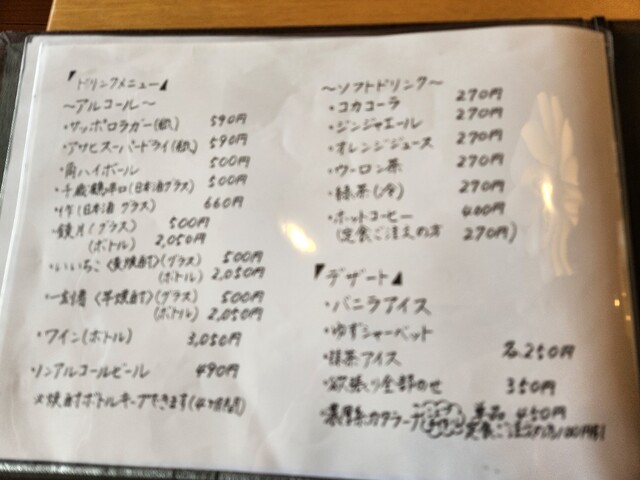 「ドリンクメニュー」
～アルコール～
・サッポロラガー(瓶) 590円
・アサヒスーパードライ(瓶) 590円
・角ハイボール 500円
・千歳鶴辛口(日本酒グラス) 500円
・作(日本酒 グラス) 660円
・鏡月(グラス) 500円
(ボトル) 2,050円
・いいちこ〈麦焼酎〉(グラス) 500円
(ボトル) 2,050円
・一刻者〈芋焼酎〉(グラス) 500円
(ボトル) 2,050円
・ワイン(ボトル) 3,050円
ノンアルコールビール 490円
※焼酎ボトルキープできます(4ヶ月間)
～ソフトドリンク～
・コカコーラ 270円
・ジンジャエール 270円
・オレンジジュース 270円
・ウーロン茶 270円
・緑茶(冷) 270円
・ホットコーヒー 400円
(定食ご注文の方 270円)
「デザート」
・バニラアイス
・ゆずシャーベット
・抹茶アイス 各250円
・欲張り全部のせ 350円
・濃厚系カタラーナ 単品 450円
定食ご注文の方100円引